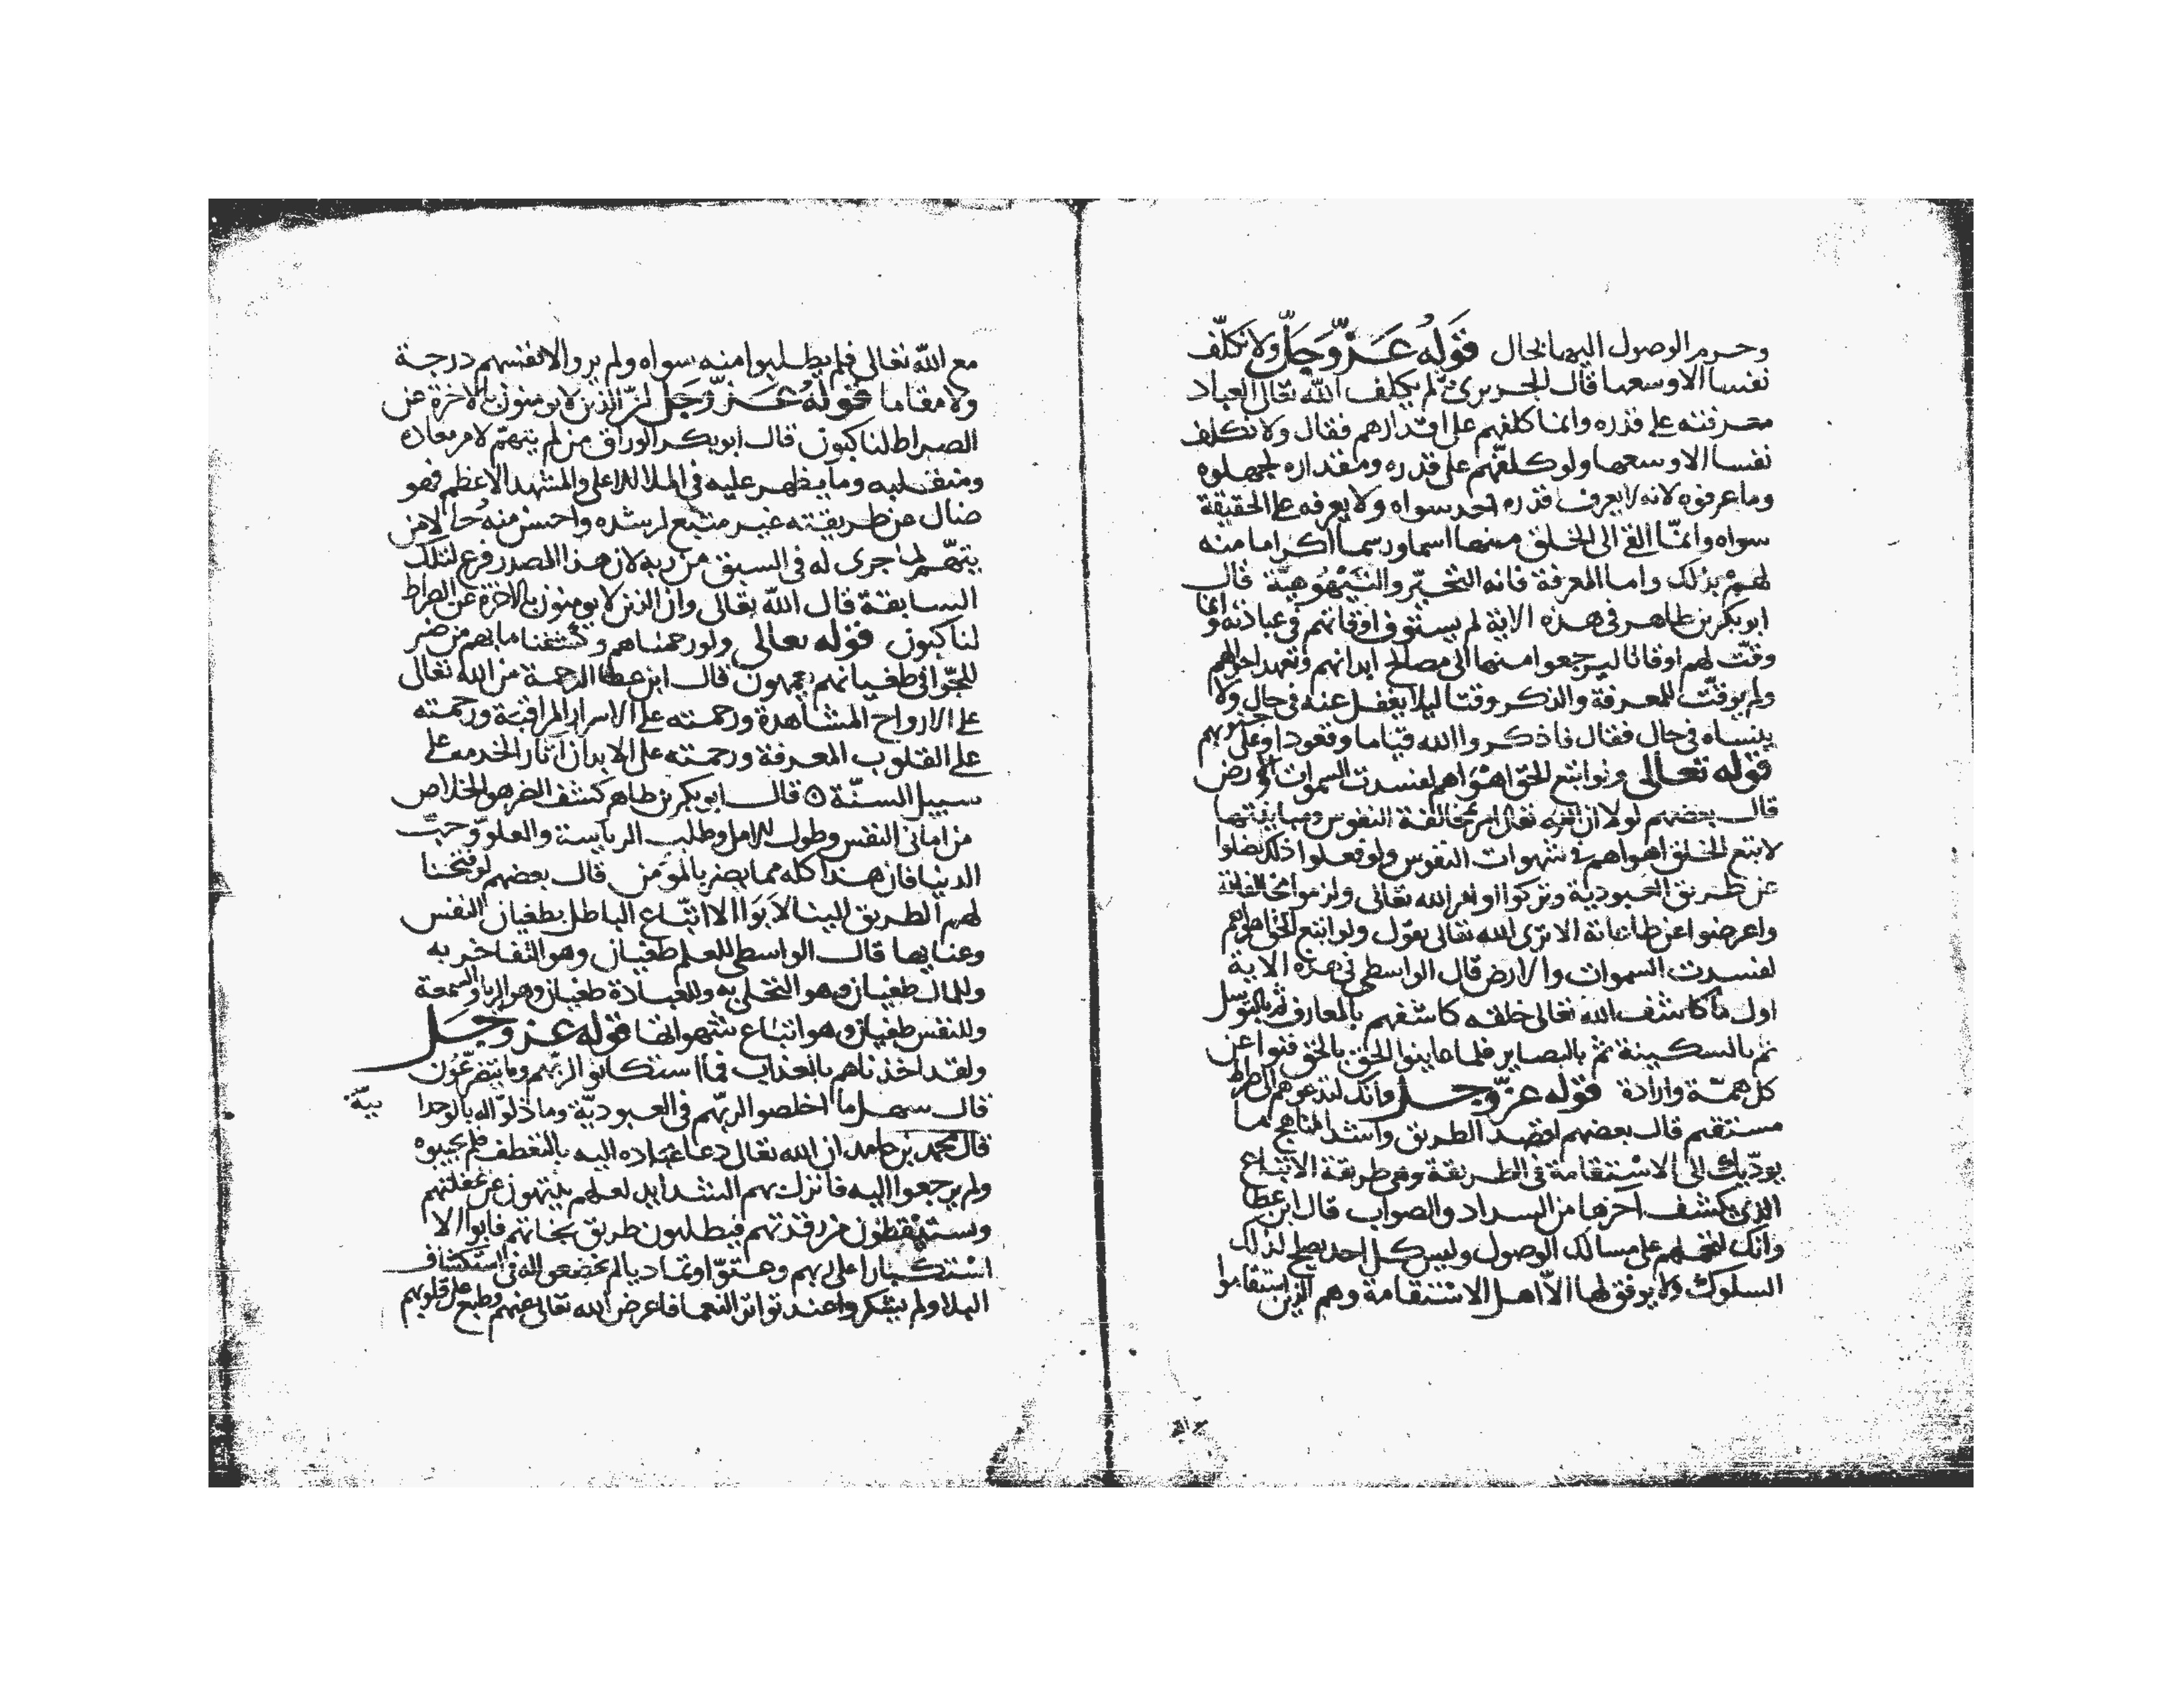 وحرم الوصول اليها بحال قوله عز وجل ولا نكلف
نفسا الا وسعها قال الجريرى لم يكلف الله تعالى العباد
معرفته على قدره وانما كلفهم على اقدارهم فقال ولا نكلف
نفسا الا وسعها ولو كلفهم على قدره ومقداره لجهلوه
وما عرفوه لانه لا يعرف قدره احد سواه ولا يعرفه على الحقيقة
سواه وانما القى الى الخلق منها اسما ورسما اكراما منه
لهم بذلك واما المعرفة فانه التحير والتيهوهية قال
ابو بكر بن طاهر فى هذه الاية لم يستوف اوقاتهم فى عبادته وانما
وقت لهم اوقاتا ليرجعوا منها الى مصالح ابدانهم وتعهد احوالهم
ولم يوقت للمعرفة والذكر وقتا ليلا يغفل عنه فى حال ولا
ينساه فى حال فقال فاذكروا الله قياما وقعودا وعلى جنوبهم
قوله تعالى ولو اتبع الحق اهواهم لفسدت السموات والارض
قال بعضهم لولا ان الله تعالى امر بمخالفة النفوس ومباينتها
لاتبع الخلق اهواهم فى شهوات النفوس ولو فعلوا ذلك لضلوا
عن طريق العبودية وتركوا اوامر الله تعالى ولزموا مخالفته
واعرضوا عن طاعاته الا ترى الله تعالى يقول ولو اتبع الحق اهواهم
لفسدت السموات والارض قال الواسطى فى هذه الاية
اول ما كاشف الله تعالى خلقه كاشفهم بالمعارف ثم بالتوسل
ثم بالسكينة ثم بالبصاير فلما عاينوا الحق بالحق فنوا عن
كل همة وارادة قوله عز وجل وانك لتدعوهم الى صراط
مستقيم قال بعضهم اقصد الطريق واشد المناهج ما
يوديك الى الاستقامة فى الطريقة وهى طريقة الاتباع
الذى يكشف اخرها من السداد والصواب قال ابن عطا
وانك لتحملهم على مسالك الوصول وليس كل احد يصلح لذلك
السلوك ولا يوفق لها الا اهل الاستقامة وهم الذين استقاموا
مع الله تعالى فلم يطلبوا منه سواه ولم يروا لانفسهم درجة
ولا مقاما قوله عز وجل ان الذين لا يومنون بالاخرة عن
الصراط لناكبون قال ابو بكر الوراق من لم يتهم لامر معاده
ومنقلبه وما يظهر عليه فى الملا الاعلى والمشهد الاعظم فهو
ضال عن طريقته غير متبع لرشده واحسن منه حالا من
يتهم لما جرى له فى السبق من ربه لان هذا المصدر فرع لتلك
السابقة قال الله تعالى وان الذين لا يومنون بالاخرة عن الصراط
لناكبون قوله تعالى ولو رحمناهم وكشفنا ما بهم من ضر
للجوا فى طغيانهم يعمهون قال ابن عطا الرحمة من الله تعالى
على الارواح المشاهدة ورحمته على الاسرار المراقبة ورحمته
على القلوب المعرفة ورحمته على الابدان اثار الخدمة على
سبيل السنة ه قال ابو بكر بن طاهر كشف الضر هو الخلاص
من امانى النفس وطول الامل وطلب الرياسة والعلو وحب
الدنيا فان هذا كله مما يضر بالمومن قال بعضهم لو فتحنا
لهم الطريق الينا لابوا الا اتباع الباطل بطغيان النفس
وعنايها قال الواسطى للعلم طغيان وهو التفاخر به
وللمال طغيان وهو التحلى به وللعبادة طغيان وهو الريا والسمعة
وللنفس طغيان وهو اتباع شهواتها قوله عز وجل
ولقد اخذناهم بالعذاب فما استكانوا لربهم وما يتضرعون
قال سهل ما اخلصوا لربهم فى العبودية وما ذلوا له بالوحدا
نية
قال محمد بن حامد ان الله تعالى دعا عباده اليه بالتعطف فلم يجيبوه
ولم يرجعوا اليه فانزلت بهم الشدايد لعلهم ينتهون عن غفلتهم
ويستيقظون من رقدتهم فيطلبون طريق نجاتهم فابوا الا
استكبارا على ربهم وعتوا وتماديا لم يخضعوا له فى استكشاف
البلا ولم يشكروا عند تواتر النعما فاعرض الله تعالى عنهم وطبع على قلوبهم